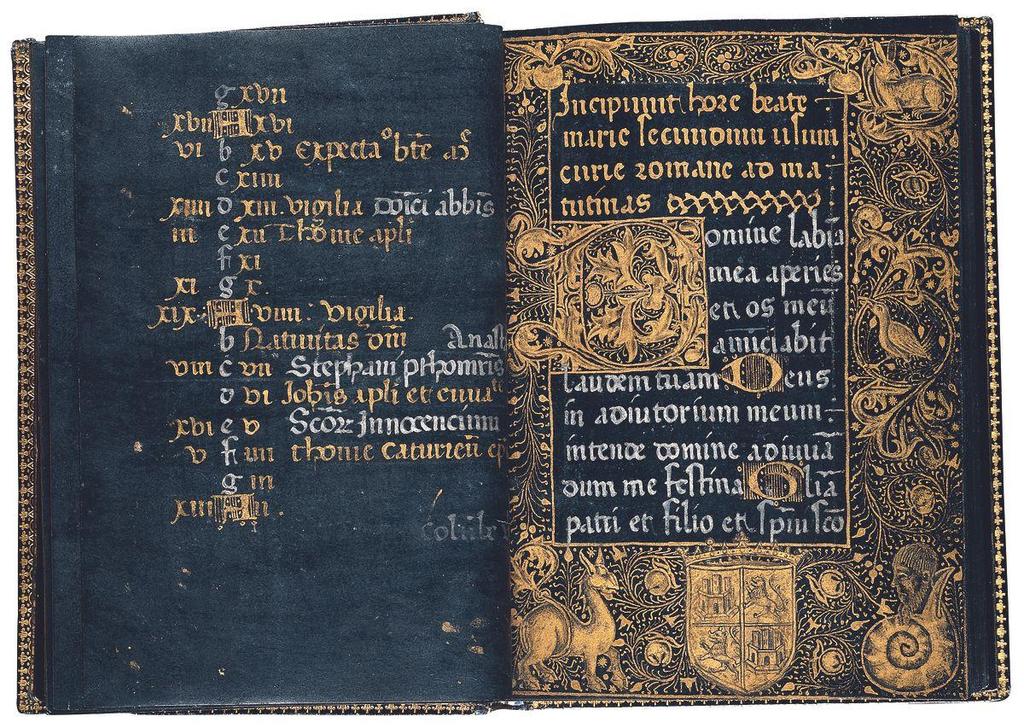 g xvii
xvii A xvi
vi b xv Expectaº bt̄e
c xiiii
xiiii d xiii vigilia abbis
iii e xii Thome apli
f xi
xi g x
xix A viiii vigilia
b Natiuitas dn̄i Anast
viii c vii Stephani
d vi Joh̄is apli et
xvi e v Innocencium
v f iiii thome ep
g iii
xiii A ii
Incipiunt hore beate
marie secundum usum
curie romane ad ma
tutinas
Domine labia
mea aperies
et os meū
anūciabit
laudem tuam Deus
in adiutorium meum
intende domine adiuuā
dum me festina Gl̄ia
patri et filio et sp̄ui sc̄o